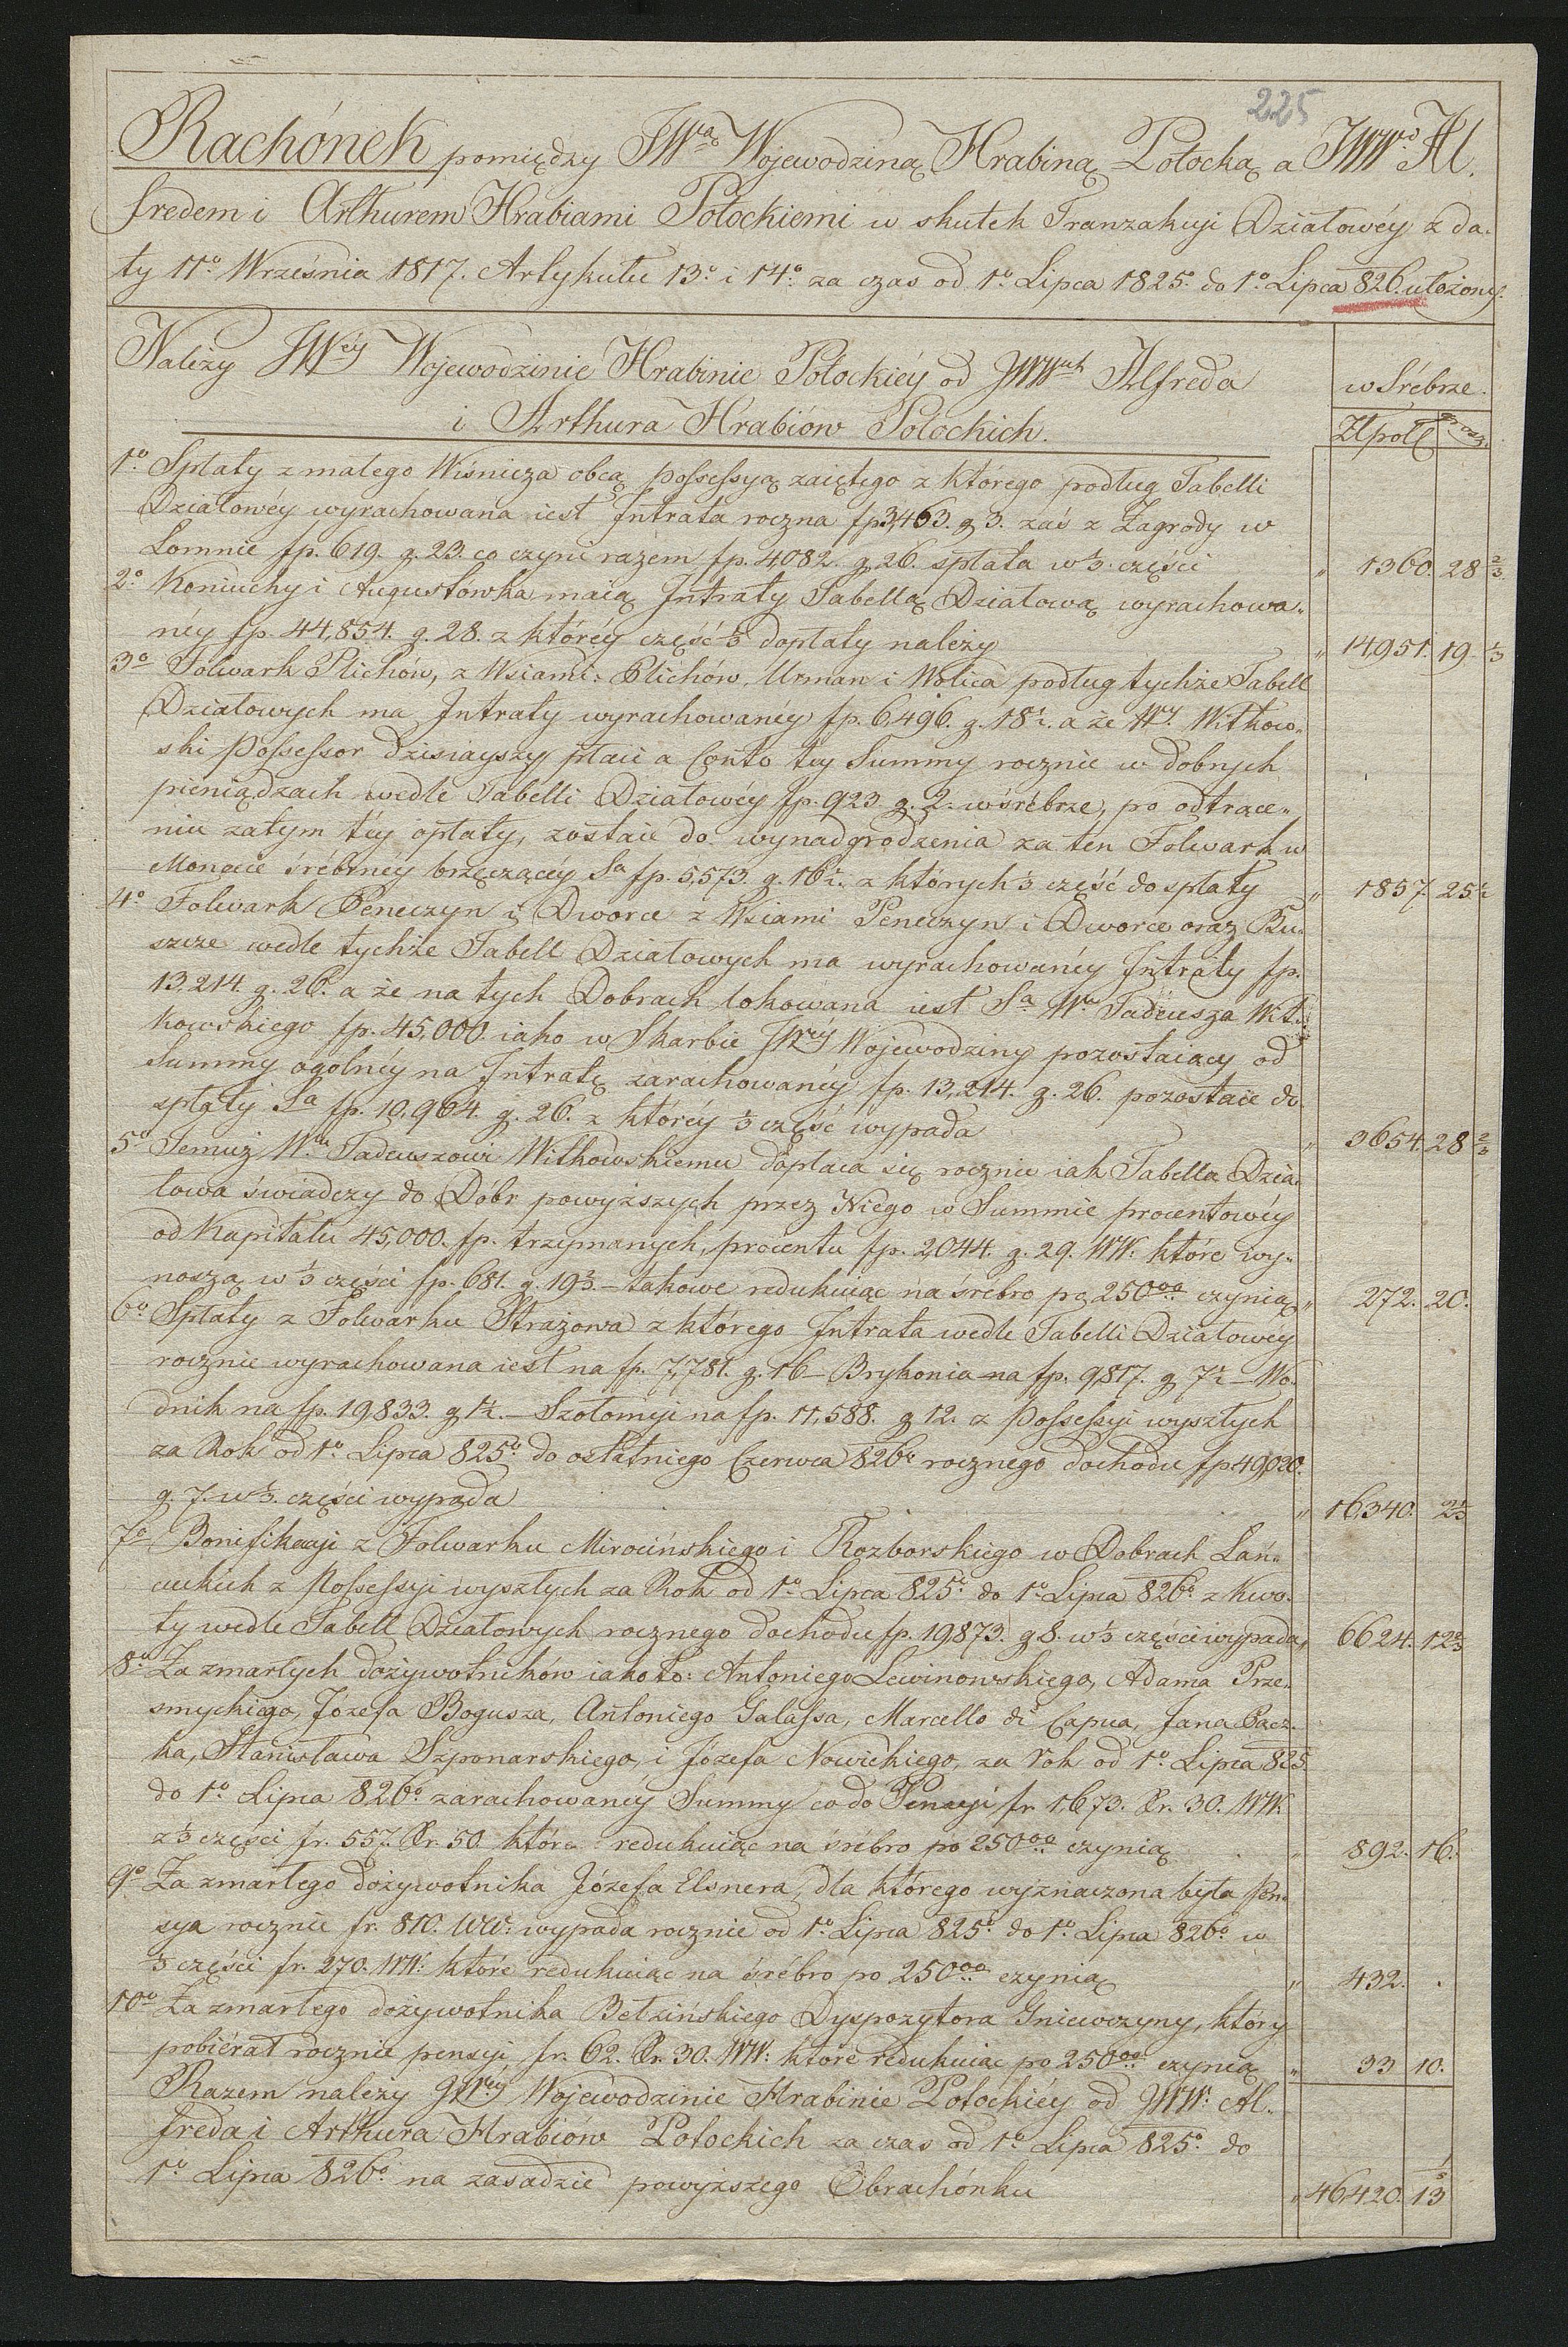 225
Rachónek pomiędzy JWą Wojewodziną Hrabiną Potocką a JWWo Al.
fredem i Arthurem Hrabiami Potockiemi w skutek Tranzakcyi Działowéy z da.
ty 11o Września 1817. Artykułu 13o i 14o za czas od 1o Lipca 1825o do 1o Lipca 826. ułożony.
Należy JWéy Wojewodzinie Hrabinie Potockiéy od JWWch Alfreda
i Arthura Hrabiów Potockich.
w Srébrze.
Złpol
1o Spłaty z małego Wiśnicza obcą possessyą zaiętego z którego podług Tabelli
Działowéy wyrachowana iest Intrata roczna fp 3,463. g 3. zaś z Zagrody w
Lomnie fp. 619. g. 23. co czyni razem fp. 4082. g. 26. spłata w ⅓. części " 1360. 28 ⅔
2o Koniuchy i Augustówka maią Intraty Tabellą Działową wyrachowa„
néy fp. 44,854. g. 28. z któréy część ⅓ dopłaty należy " 14,951. 19 ⅓
3o Folwark Plichów, z Wsiami: Plichów, Urman i Wolica podług tychże Tabell
Działowych ma Intraty wyrachowanéy fp. 6496. g. 18½. a że Wy. Witkow„
ski Possessor dzisiayszy płaci a Conto tey Summy rocznie w dobrych
pieniądzach wedle Tabelli Działowéy fp. 923 g. 2. w śrébrze, po odtrące„
niu zatym téy opłaty, zostaie do wynadgrodzenia za ten Folwark w
Monecie śrébrnéy brzęczącéy Sa fp. 5,573. g. 16½. z których ⅓ część do spłaty " 1857. 25½
4o Folwark Peneczyn i Dworce z Wsiami Peneczyn i Dworce oraz Ku„
szcze wedle tychże Tabell Działowych ma wyrachowanéy Intraty fp.
13,214. g. 26. a że na tych Dobrach lokowana iest Sa Wo Tadeusza Wit„
kowskiego fp. 45,000. iako w Skarbie JWéy Wojewodziny pozostaiący od
Summy ogolnéy na Intratę zarachowanéy fp. 13,214. g. 26. pozostaie do
spłaty Sa fp. 10,964. g. 26. z któréy ⅓ część wypada " 3654. 28 ⅔
5o Temuż Wu Tadeuszowi Witkowskiemu dopłaca się rocznie iak Tabella Dzia„
łowa świadczy do Dóbr powyższych przez Niego w Summie procentowéy
od Kapitału 45,000. fp. trzymanych, procentu fp. 2,044. g. 29. WW: które wy„
noszą w ⅓ części fp. 681. g. 19⅔ – takowe redukuiąc na śrébro po 250 czynią " 272. 20.
6o Spłaty z Folwarku Strażowa z którego Intrata wedle Tabelli Działowéy
rocznie wyrachowana iest na fp. 7,781. g. 16 – Brykonia na fp. 9,817. g 7½ – Wo.
dnik na fp. 19,833. g 1½. – Szołomyi na fp. 11,588. g 12. z possessyi wyszłych
za Rok od 1o Lipca 825o do ostatniego Czerwca 826o rocznego dochodu fp 49,020.
g. 7. w ⅓. części wypada " 16,340. 2⅓
7o Bonifikacyi z Folwarku Mirocińskiego i Rozborskiego w Dobrach Łań„
cuckich z possessyi wyszłych za Rok od 1o Lipca 825o do 1o Lipca 826o z Kwo.
ty wedle Tabell Działowych rocznego dochodu fp. 19,873. g 8. w ⅓ części wypada " 6624. 12⅔
8o Za zmarłych dożywotników iako to: Antoniego Lewinowskiego, Adama Prze.
smyckiego, Józefa Bogusza, Antoniego Galassa, Marcello di Capua, Jana Pacz.
ka, Stanisława Szponarskiego, i Józefa Nowickiego, za rok od 1o Lipca 825
do 1o Lipca 826o zarachowanéy Summy co do Pensyi fr 1,673. Xr. 30. WW.
z ⅓ części fr. 557. Xr. 50. które redukuiąc na śrébro po 250 czynią " 892. 16.
9o Za zmarłego dożywotnika Józefa Elsnera, dla którego wyznaczona była Pen„
sya rocznie fr. 810. WW: wypada rocznie od 1o Lipca 825o do 1o Lipca 826o w
⅓ części fr. 270. WW: które redukuiąc na śrébro po 250 czynią " 432. .
10o Za zmarłego dożywotnika Betzińskiego Dyspozytora Gniewczyny, który
pobiérał rocznie pensyi fr. 62. Xr. 30. WW: które redukuiąc po 250 czynią " 33 10.
Razem należy JWéy Wojewodzinie Hrabinie Potockiéy od JWW: Al.
freda i Arthura Hrabiów Potockich za czas od 1o Lipca 825o do
1o Lipca 826o na zasadzie powyższego Obrachónku " 46,420. 13